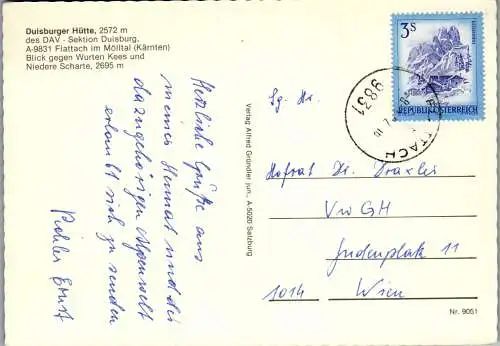 Duisburger Hütte, 2572 m
des DAV - Sektion Duisburg.
A-9831 Flattach im Mölltal (Kärnten)
Blick gegen Wurten Kees und
Niedere Scharte, 2695 m
Herzliche Grüße aus
meiner Heimat und der
dazugehörigen Alpenwelt
erlaubt sich zu senden
Pichler Ernst
Verlag Alfred Gründler jun., A-5020 Salzburg
3S
REPUBLIK ÖSTERREICH
9831
Sg. Hr.
Hofrat Dr. Draxler
VwGH
Judenplatz 11
1014 Wien
Nr. 9051